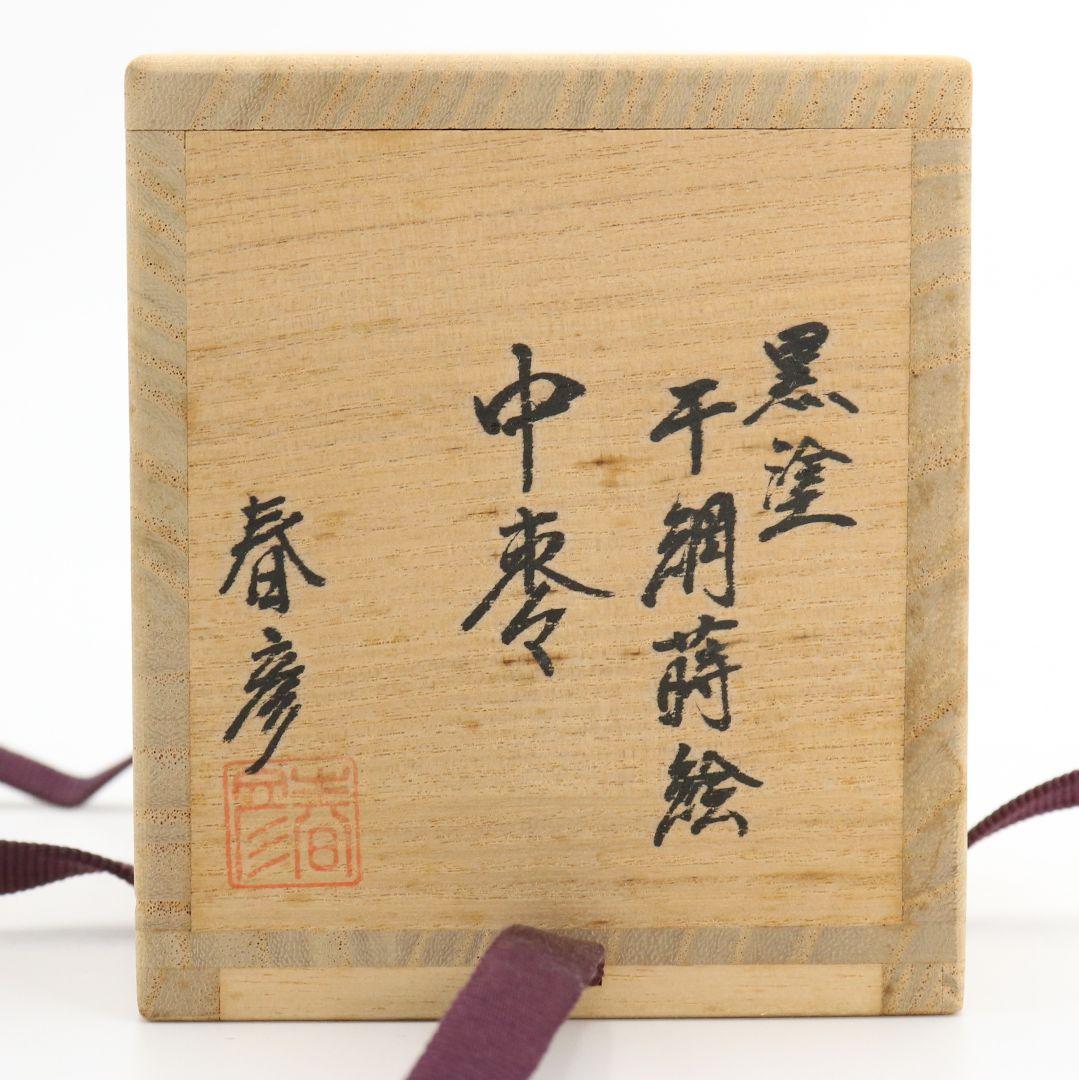 黒塗
干網蒔絵
中棗
春彦
春彦